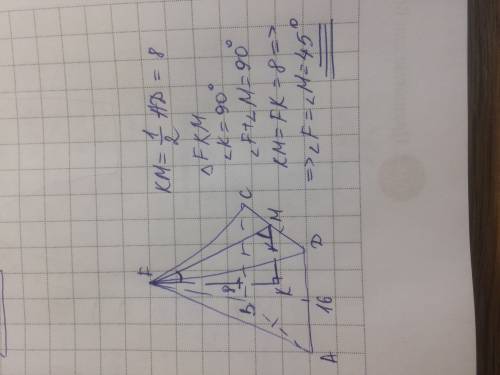 KM = 1/2 AD = 8
△FKM
∠K = 90°
∠F + ∠M = 90°
KM = FK = 8 =>
=> ∠F = ∠M = 45°
F
8
B
C
K
M
A
16
D